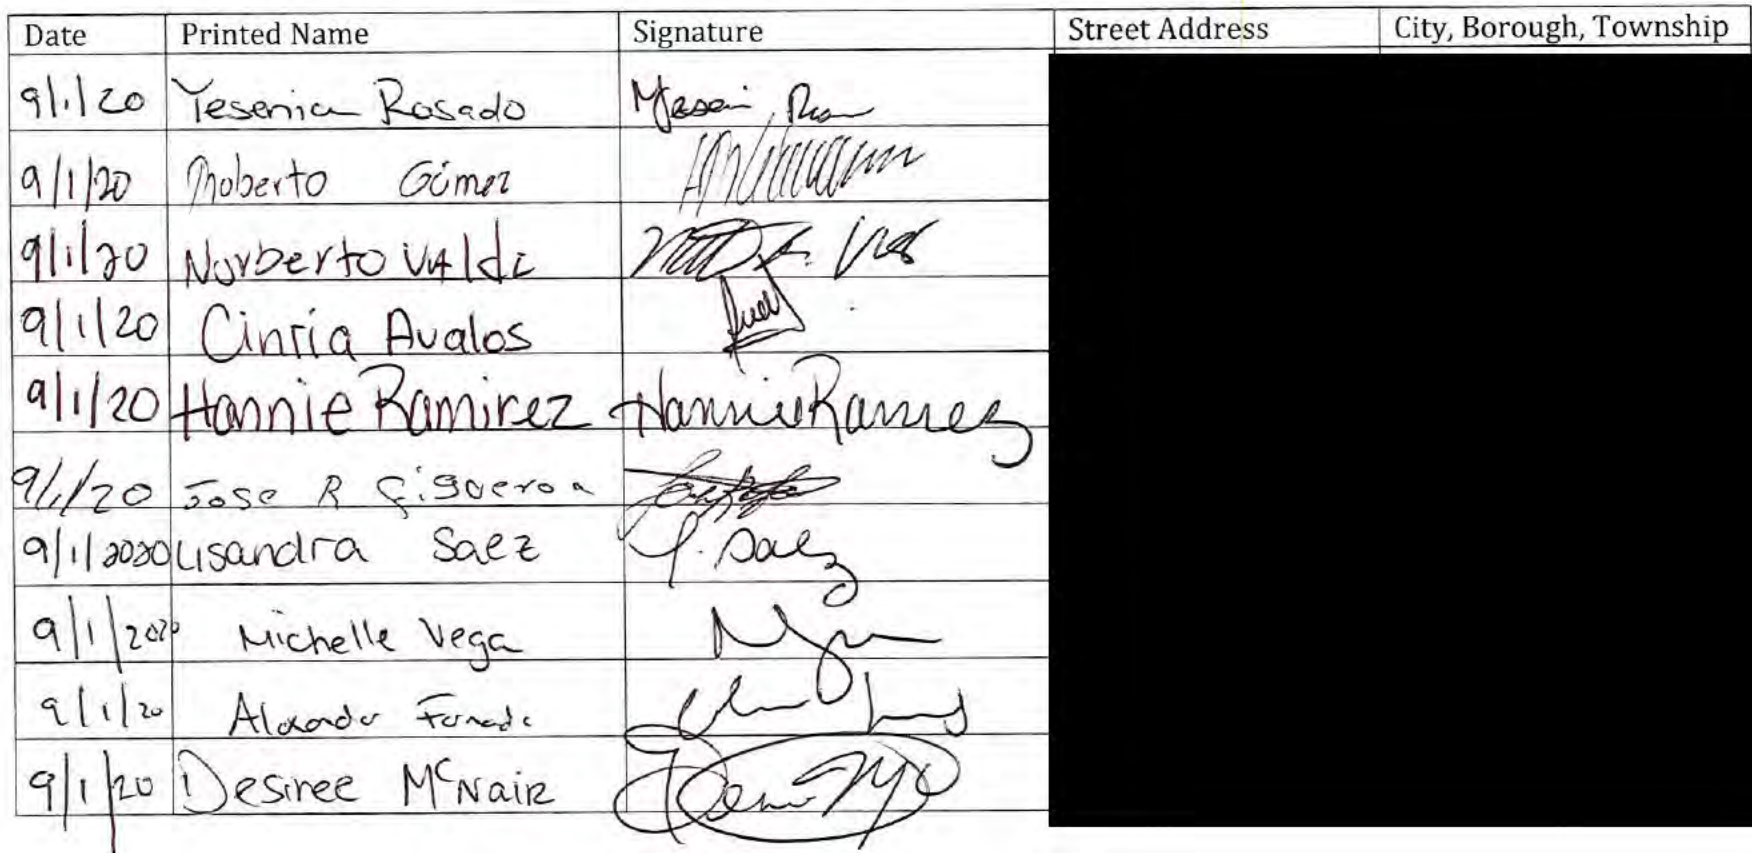 Date Printed Name Signature Street Address City, Borough, Township
9/1/20 Yesenia Rosado
9/1/20 Roberto Gómez
9/1/20 Norberto VAldez
9/1/20 Cintia Avalos
9/1/20 Hannie Ramirez Hannie Ramirez
9/1/20 Jose R Figueroa
9/1/2020 Lisandra Saez L. Saez
9/1/2020 Michelle Vega
9/1/20 Alexander
9/1/20 Desiree McNair